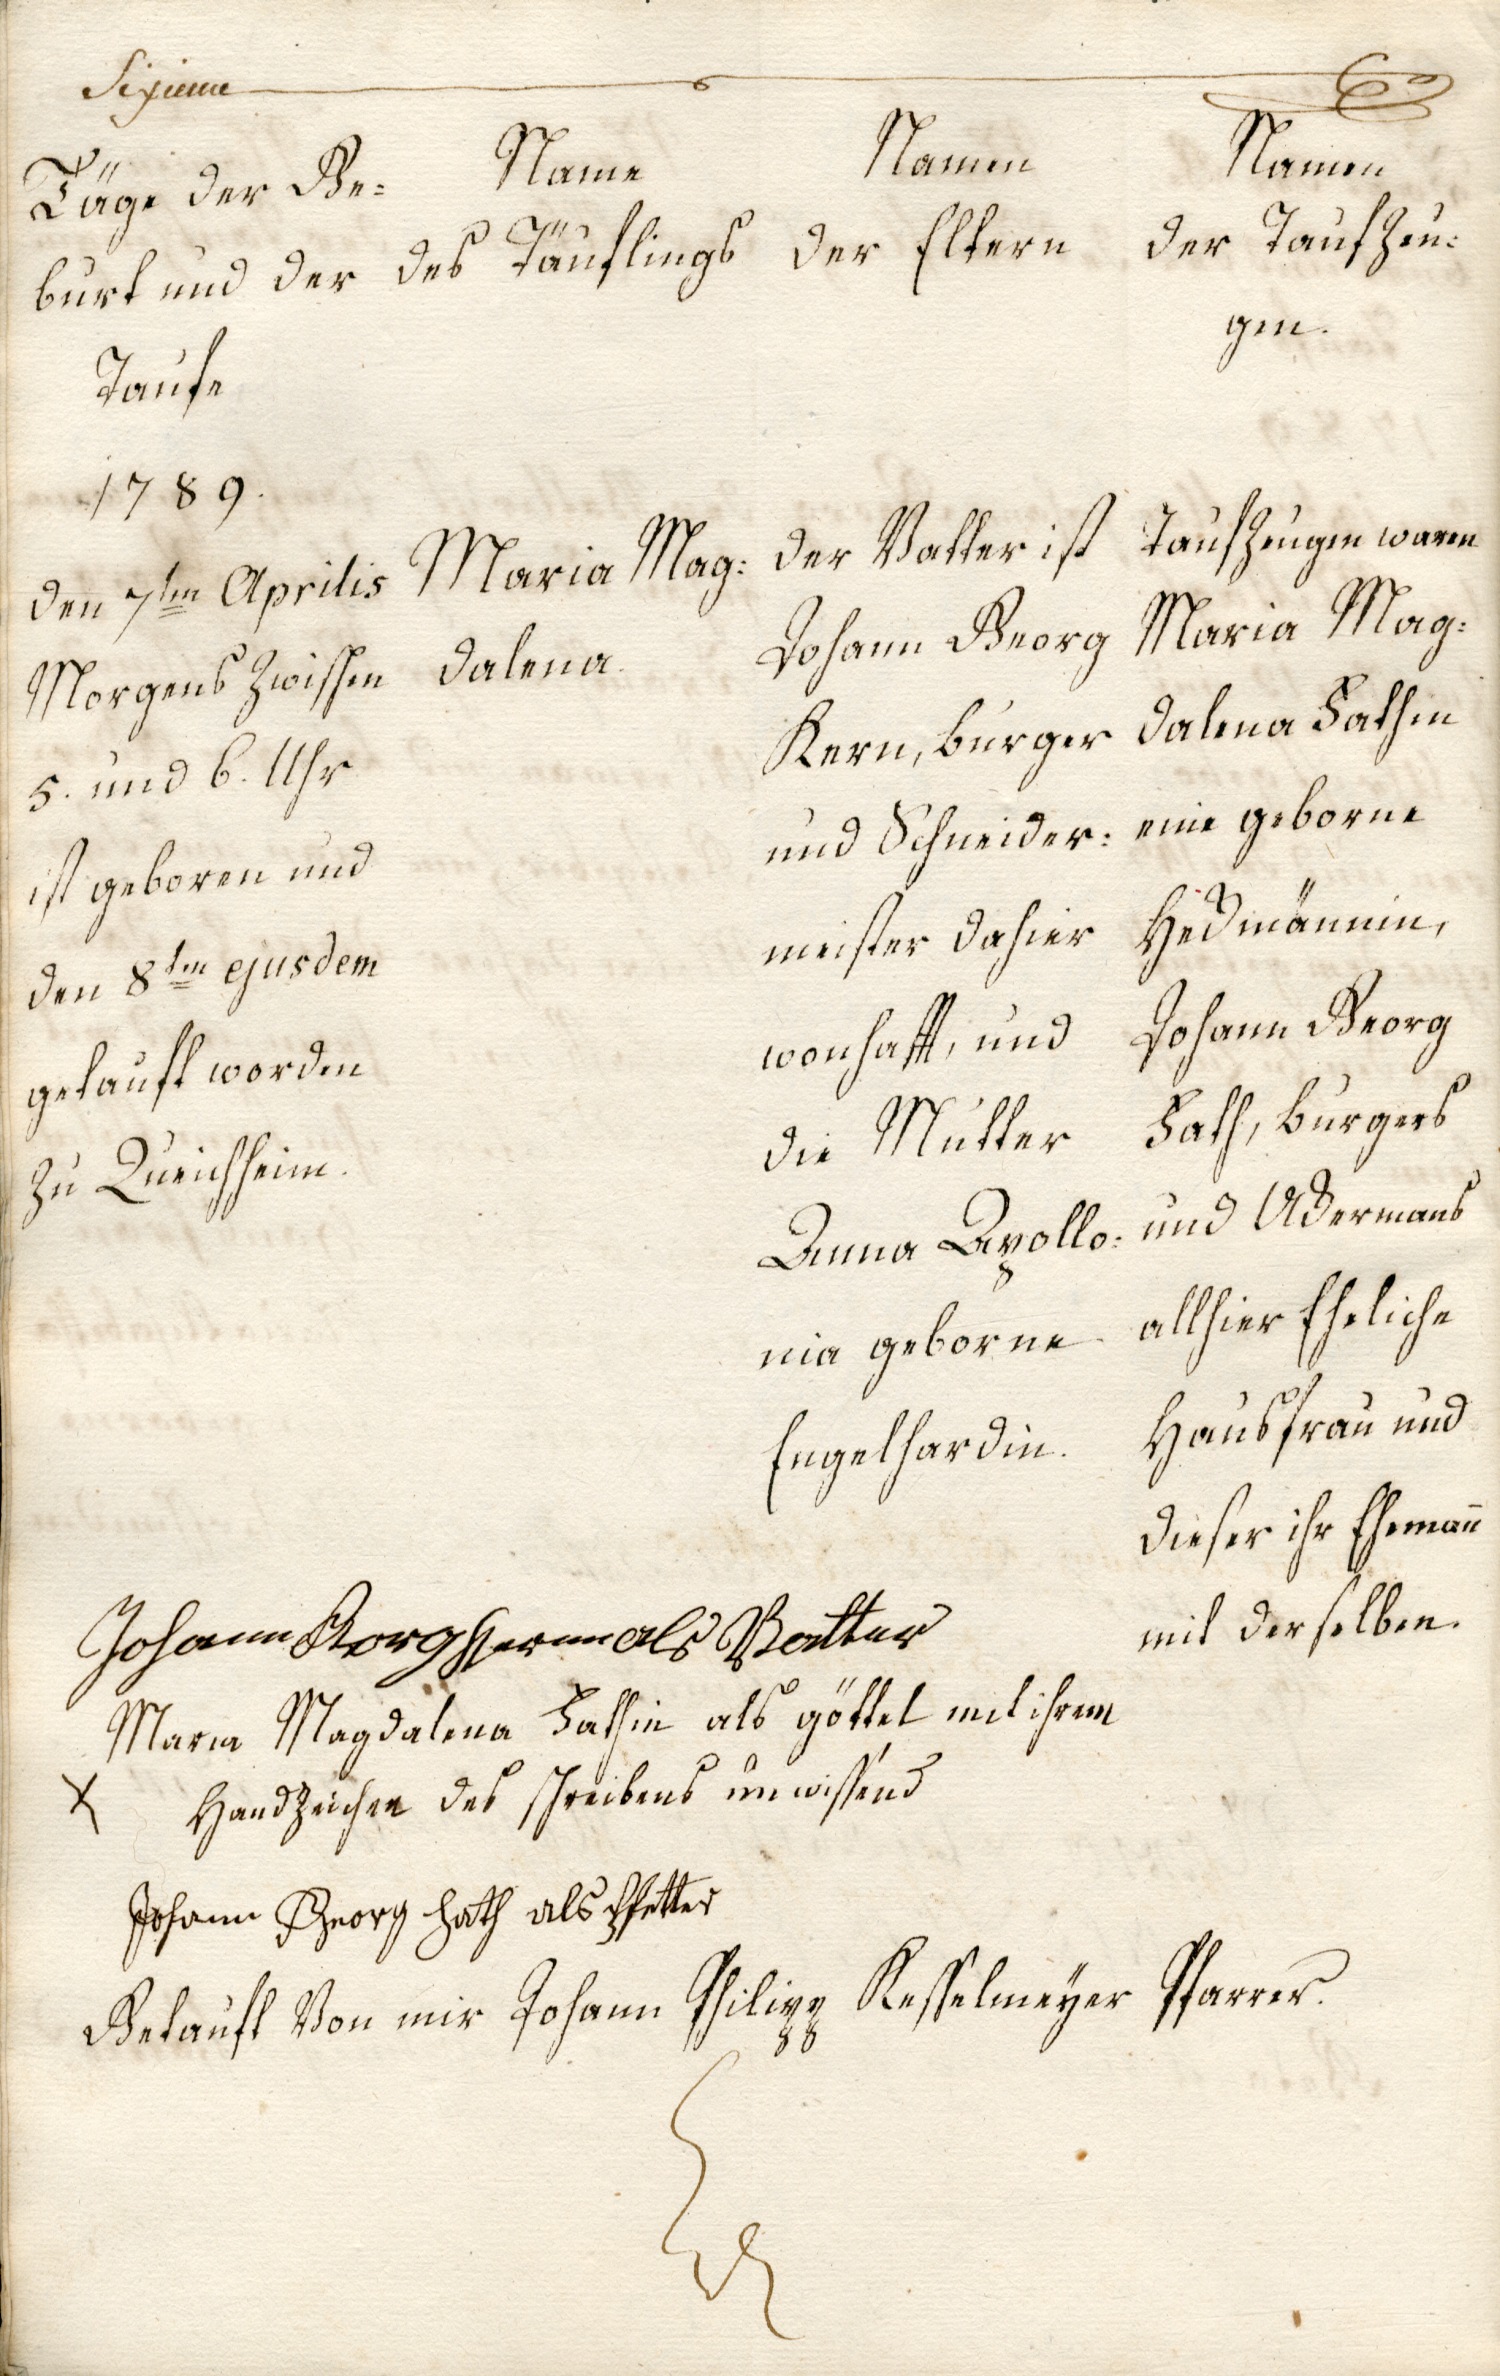 Sixieme
Täge der Ge=
burt und der
Taufe
1789.
den 7ten Aprilis
Morgens zwischen
5. und 6. Uhr
ist geboren und
den 8ten ejusdem
getauft worden
zu Queichheim.
Name
des Täuflings
Maria Mag=
dalena.
Namen
der Eltern
der Vatter ist
Johann Georg
Kern, burger
und Schneider=
meister dahier
wonhafft, und
die Mutter
Anna Apollo=
nia geborne
Engelhardin.
Namen
der Taufzeu=
gen.
Taufzeugen waren
Maria Mag=
dalena Hathin
eine geborne
Heckmännin,
Johann Georg
Hath, burgers
und Ackermans
allhier Eheliche
Hausfrau und
dieser ihr Ehemañ
mit derselben.
Johann Georg Kern als Vatter
Maria Magdalena Hathin als göttel mit ihrem
X Handzeichen des schreibens unwissend
Johann Georg Hath als Pfetter
Getauft Von mir Johann Philipp Kesselmeÿer Pfarrer.